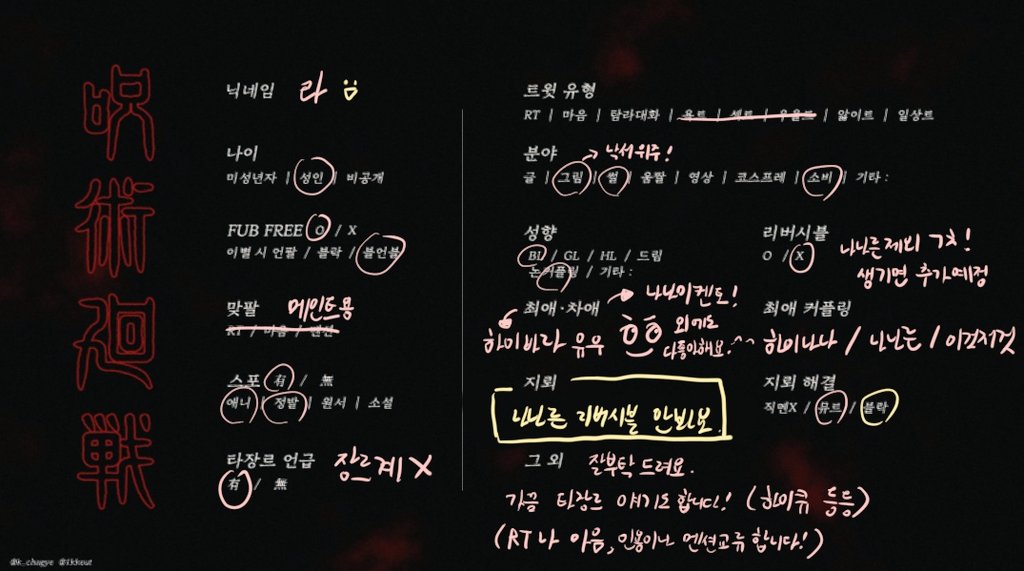 呪術廻戦
닉네임 라
나이
미성년자 | 성인 | 비공개
FUB FREE O / X
이별 시 언팔 / 블락 / 블언블
맞팔 메인트용
RT / 마음 / 멘션
스포 有 / 無
애니 | 정발 | 원서 | 소설
타장르 언급 장르계 X
有 / 無
트윗 유형
RT | 마음 | 탐라대화 | 욕트 | 섹트 | 우울트 | 앓이트 | 일상트
분야 → 낙서위주!
글 | 그림 | 썰 | 움짤 | 영상 | 코스프레 | 소비 | 기타 :
성향
BL / GL / HL / 드림
논커플링 / 기타 :
리버시블
O / X
나닌른제외 ㄱㅊ!
생기면 추가예정
최애·차애 → 나닌이켄도!
하이바라 유우
외에도
다좋아해요!^^
최애 커플링
하이나나 / 나닌른 / 이것저것
지뢰
나닌른 리버시블 안봐요.
지뢰 해결
직멘X / 뮤트 / 블락
그 외 잘부탁 드려요.
가끔 타장르 얘기도 합니다! (하이큐 등등)
(RT나 마음, 인용이나 멘션교류합니다!)
@k_chagye @ikkeut